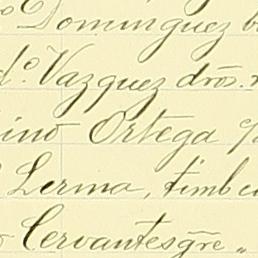 Dominguez
d.º Vazquez drõs.
ino Ortega
Lerma, timb
Cervantes g̃re „